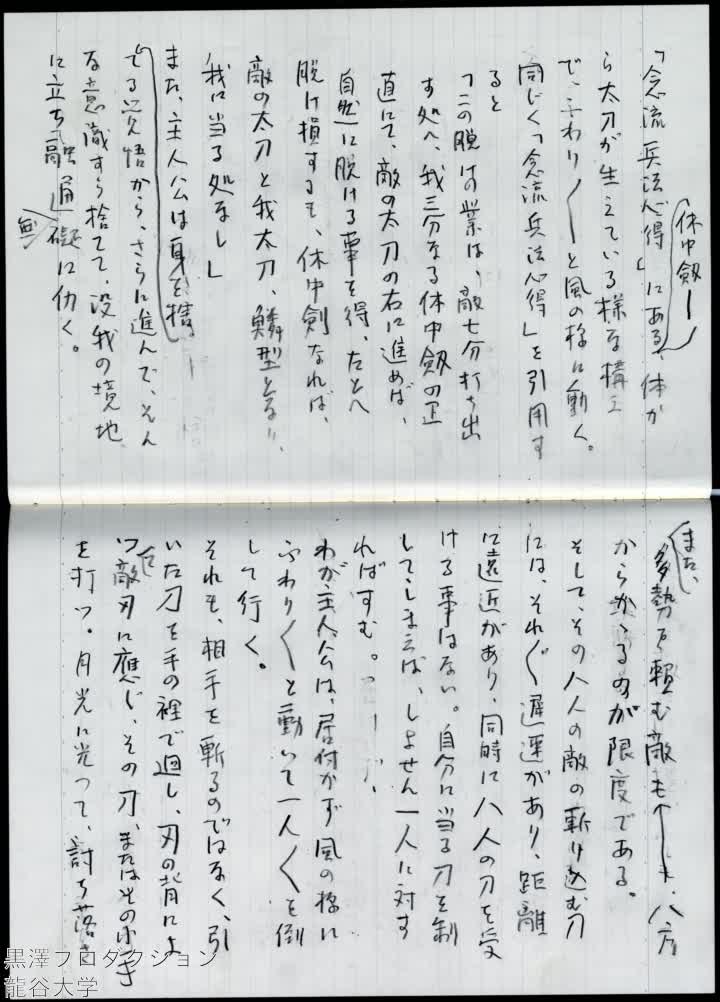 「念流兵法心得」にある、体か
休中剱
ら太刀が生えている様な構え
で、ふわり〱と風の様に動く。
同じく「念流兵法心得」を引用す
ると
「この脱けの業は、敵七分打ち出
す処へ、我三分なる休中剱の正
直にて、敵の太刀の右に進めば、
自然に脱ける事を得、たとへ
脱け損ずるも、休中剣なれば、
敵の太刀と我太刀、鱗型となり、
我に当る処なし」
また、主人公は身を捨
てる覚悟から、さらに進んで、そん
な意識すら捨てて、没我の境地
に立ち融通無礙に仂く。
また、多勢を頼む敵も、八方
からかゝるのが限度である。
そして、その八人の敵の斬り込む刀
には、それ〲遅速があり、距離
に遠近があり、同時に八人の刀を受
ける事はない。自分に当る刀を制
してしまえば、しょせん一人に対す
ればすむ。
わが主人公は、居付かず風の様に
ふわり〱と動いて一人〱を倒
して行く。
それも、相手を斬るのではなく、引
いた刀を手の裡で廻し、刃の背によ
って敵刃に應じ、その刀、またはその小手
を打つ。月光に光って、討ち落さ
黒澤プロダクション
龍谷大学